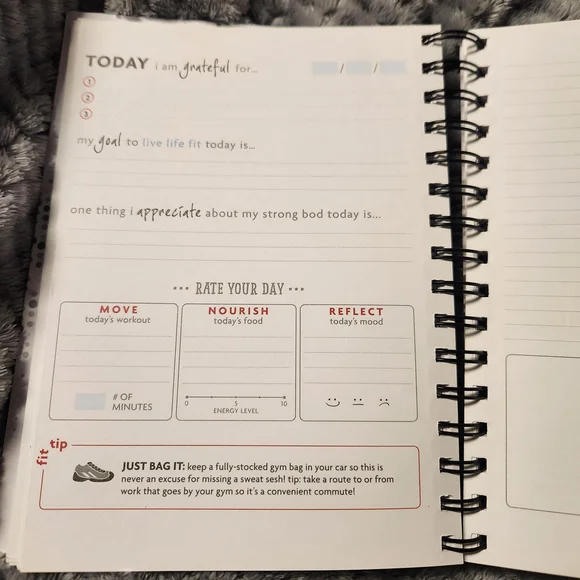 TODAY i am grateful for...
/ /
1
2
3
my goal to live life fit today is...
one thing i appreciate about my strong bod today is...
••• RATE YOUR DAY •••
MOVE
today's workout
# OF
MINUTES
NOURISH
today's food
0 5 10
ENERGY LEVEL
REFLECT
today's mood
fit tip
JUST BAG IT: keep a fully-stocked gym bag in your car so this is
never an excuse for missing a sweat sesh! tip: take a route to or from
work that goes by your gym so it's a convenient commute!